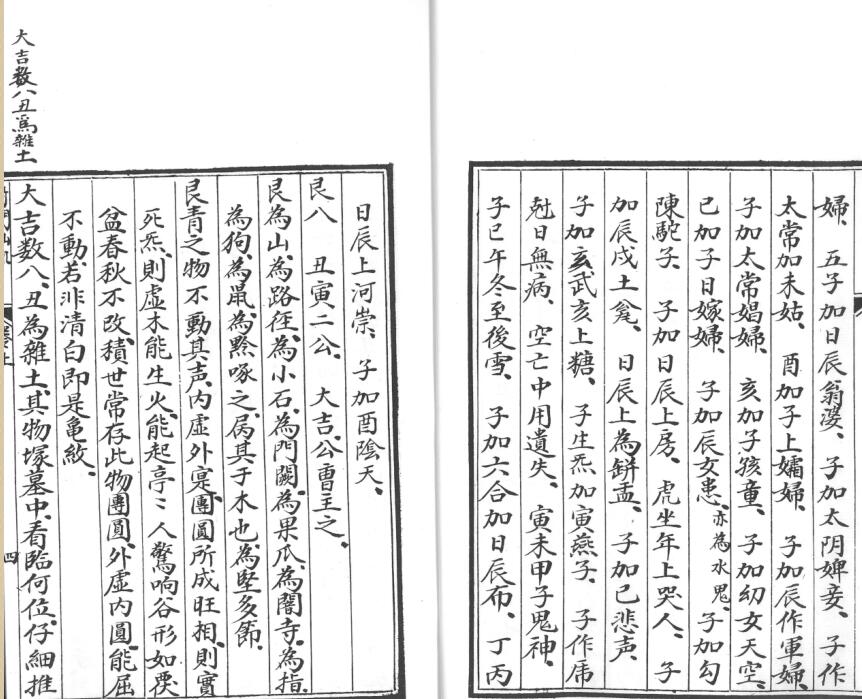 婦、五子加日辰翁婆、子加太阴婢妾、子作
太常加未姑、酉加子上孀婦、子加辰作軍婦、
子加太常娼婦、亥加子孩童、子加幼女天空、
巳加子日嫁婦、子加辰女患、亦為水鬼、子加勾
陳駝子、子加日辰上房、虎坐年上哭人、子
加辰戌土瓮、日辰上為缾盂、子加巳悲声、
子加亥武亥上糖、子生炁加寅燕子、子作席
尅日無病、空亡中用遺失、寅未甲子鬼神、
子巳午冬至後雪、子加六合加日辰布、丁丙
日辰上河崇、子加酉陰天、
艮八 丑寅二公、大吉公曹主之、
艮為山、為路徑、為小石、為門闕、為果瓜、為閽寺、為指、
為狗、為鼠、為黔啄之屬、其于木也、為堅多節、
艮青之物不動其声、内虚外寔團圓所成旺相、則實
死炁、則虚木能生火、能起亭〻人驚响谷形如覄
盆春秋不改、積世常存此物團圓、外虚内圓、能屈
不動、若非清白即是亀紋、
大吉数八、丑為雜土、其物塚墓中、看臨何位、仔細推
四
大吉数八丑為雜土